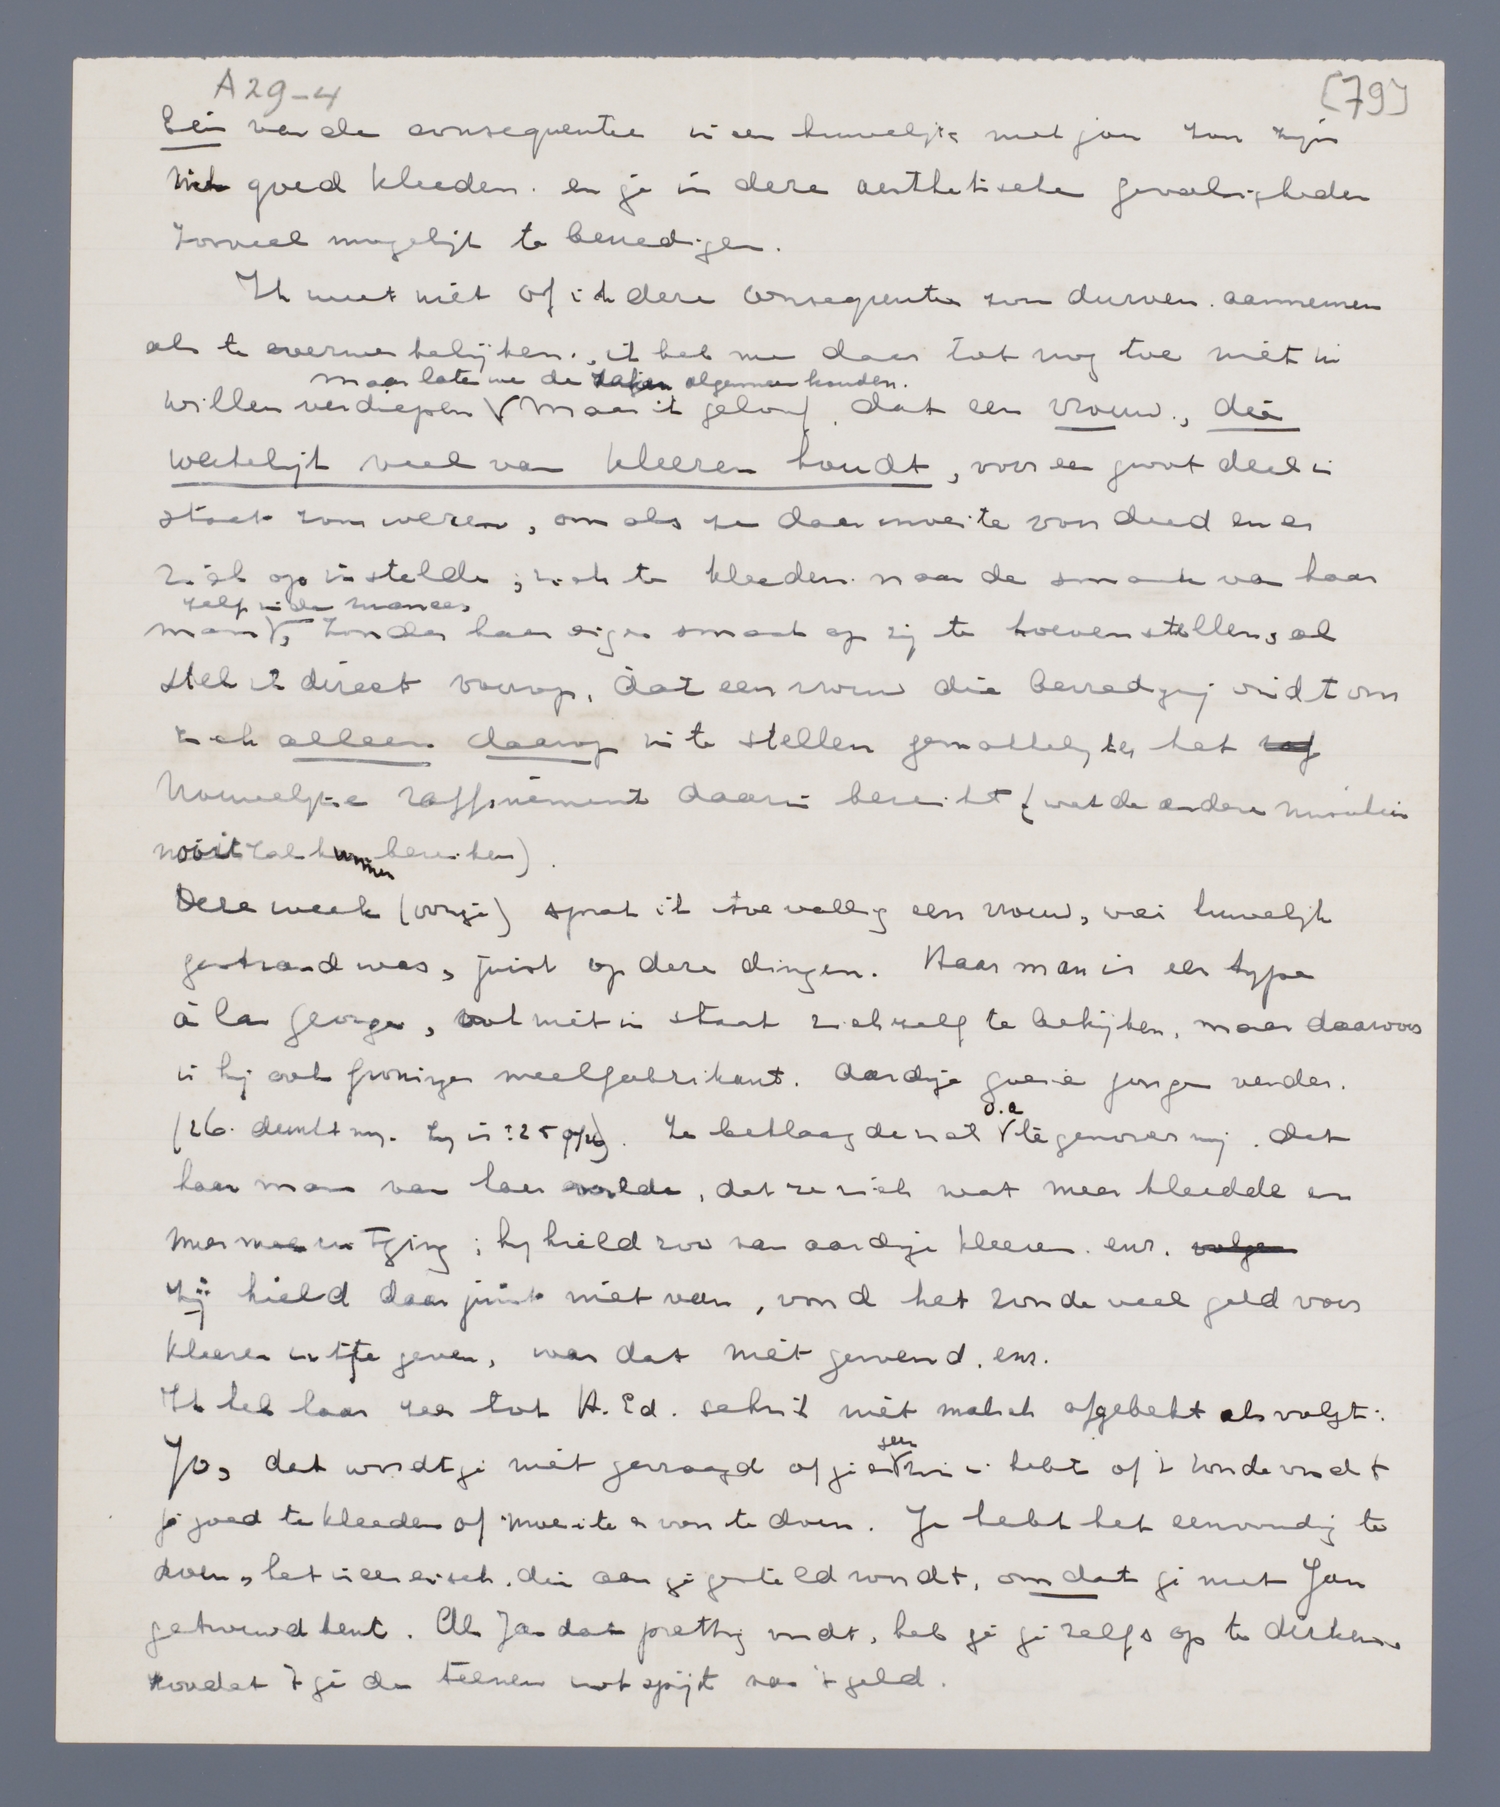 A29-4 [79]
Eén van de consequentie in een huwelijk met jou zou zijn
niet goed kleeden. en je in deze aesthetische gevoeligheden
zooveel mogelijk te bevredigen.
Ik weet niet of ik deze consequentie zou durven aannemen
als te verwerkelijken., ik heb me daar tot nog toe niet in
maar laten we de zaken algemeen houden.
willen verdiepen √ Maar ik geloof dat een vrouw., die
werkelijk veel van kleeren houdt, voor een groot deel in
staat zou wezen, om als ze daar moeite voor deed en er
zich op instelde, zich te kleeden naar de smaak van haar
zelfs in de nuances
man √, zonder haar eigen smaak op zij te hoeven stellen, al
stel ik direct voorop, dat een vrouw die bevrediging vindt om
zich alleen daarop in te stellen gemakkelijker het
vrouwelijke raffinement daarin bereikt (wat de andere misschien
nooit zal kunnen bereiken).
Deze week (vorige) sprak ik toevallig een vrouw, wier huwelijk
gestrand was, juist op deze dingen. Haar man is een type
à la George, ook niet in staat zichzelf te bekijken, maar daarvoor
is hij ook Groninger meelfabrikant. Aardige goeie jongen verder.
(26. denkt mij. zij is ± 25 op/26). Ze beklaagde zich √ tegenover mij dat
o.a.
haar man van haar wilde, dat ze zich wat meer kleedde en
meer mee uit ging; hij hield zoo van aardige kleeren. enz.
zij hield daar juist niet van, vond het zonde veel geld voor
kleeren uit te geven, was dat niet gewend. enz.
Ik heb haar zeer tot A. Ed. schrik niet malsch afgebekt als volgt:
Jo, dat wordt je niet gevraagd of je er √ zin in hebt of 't zonde vindt
je goed te kleeden of moeite er voor te doen. Je hebt het eenvoudig te
doen, het is een eisch. die aan je gesteld wordt, omdat je met Jan
getrouwd bent. Als Jan dat prettig vindt, heb je je zelfs op te dirken
zoodat 't je de teenen uit spijt van 't geld.